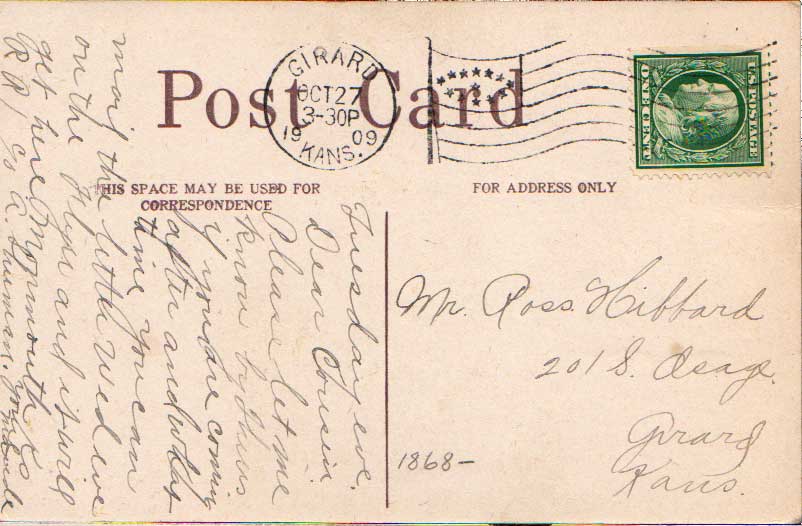 Post Card
GIRARD
OCT 27
3-30P
19 09
KANS.
U.S. POSTAGE
ONE CENT
THIS SPACE MAY BE USED FOR
CORRESPONDENCE
FOR ADDRESS ONLY
Tuesday eve.
Dear Cousin.
Please let me
know by Thurs
if you are coming
after and what
time you can
mail this little Wed eve
on the Flyer and it will
get here
R R 1 c/o
Mr. Ross. Hibbard
201 S. Osage.
Girard
Kans.
1868-